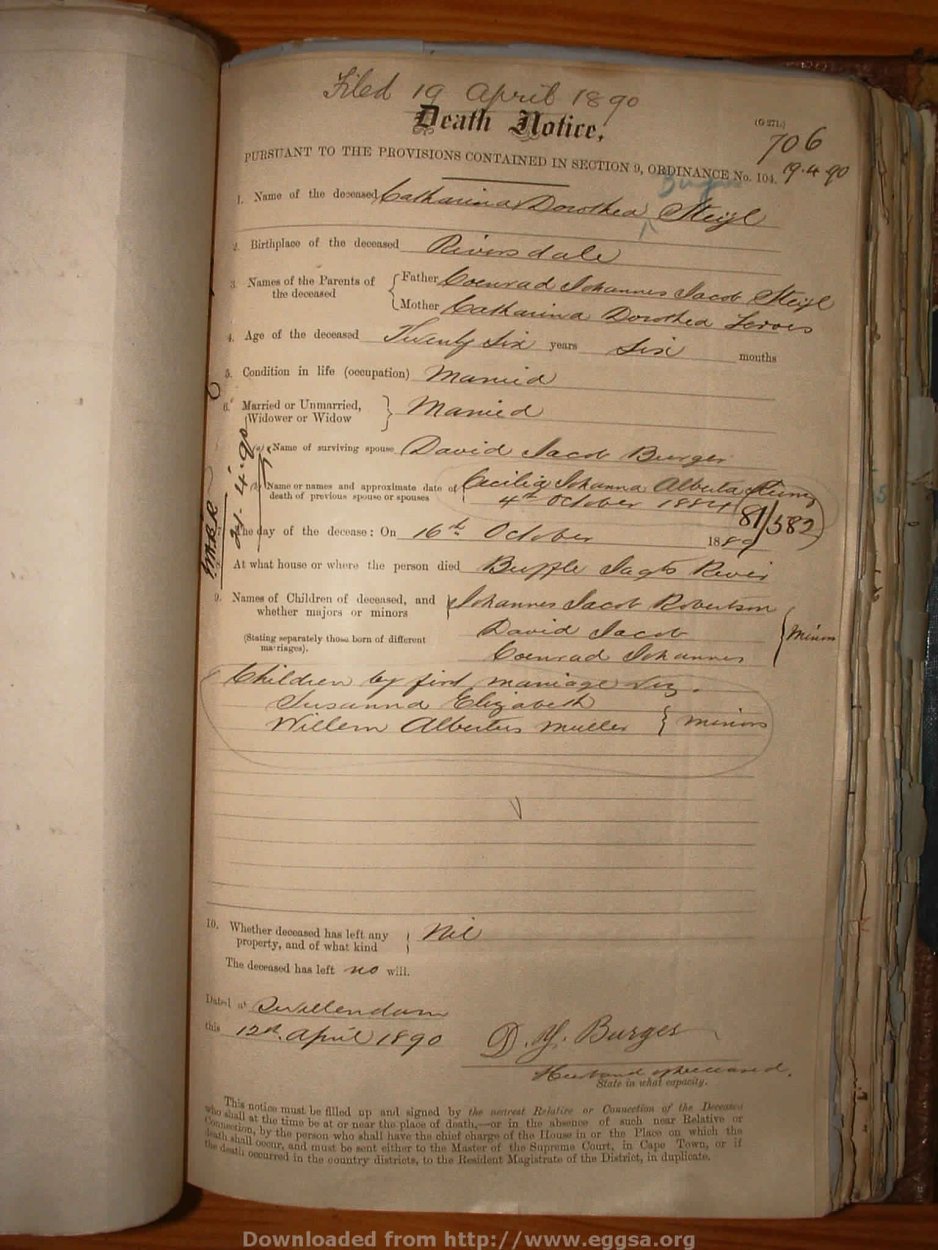 Filed 19 April 1890
Death Notice.
(G 271.)
706
19.4.90
PURSUANT TO THE PROVISIONS CONTAINED IN SECTION 9, ORDINANCE No. 104.
Burger
1. Name of the deceased Catharina Dorothea Steyl
2. Birthplace of the deceased Riversdale
3. Names of the Parents of the deceased
Father Coenrad Johannes Jacob Steyl
Mother Catharina Dorothea
4. Age of the deceased Twenty Six years Six months
5. Condition in life (occupation) Married
6. Married or Unmarried, Widower or Widow } Married
(a) Name of surviving spouse David Jacob Burger
(b) Name or names and approximate date of death of previous spouse or spouses
Cecilia Johanna Alberta
4th October 1884
81/582
The day of the decease: On 16th October 1889
At what house or where the person died Buffle Jagts River
9. Names of Children of deceased, and whether majors or minors
(Stating separately those born of different marriages).
Johannes Jacob Robertson
David Jacob
Coenrad Johannes
} minors
Children by first marriage viz.
Susanna Elizabeth
Willem Albertus Muller } minors
10. Whether deceased has left any property, and of what kind } Nil
The deceased has left no will.
Dated at Swellendam
this 12th April 1890
D. J. Burger
Husband of deceased.
State in what capacity.
This notice must be filled up and signed by the nearest Relative or Connection of the Deceased
who shall at the time be at or near the place of death,—or in the absence of such near Relative or
Connection, by the person who shall have the chief charge of the House in or the Place on which the
death shall occur, and must be sent either to the Master of the Supreme Court, in Cape Town, or if
the death occurred in the country districts, to the Resident Magistrate of the District, in duplicate.
Downloaded from http://www.eggsa.org